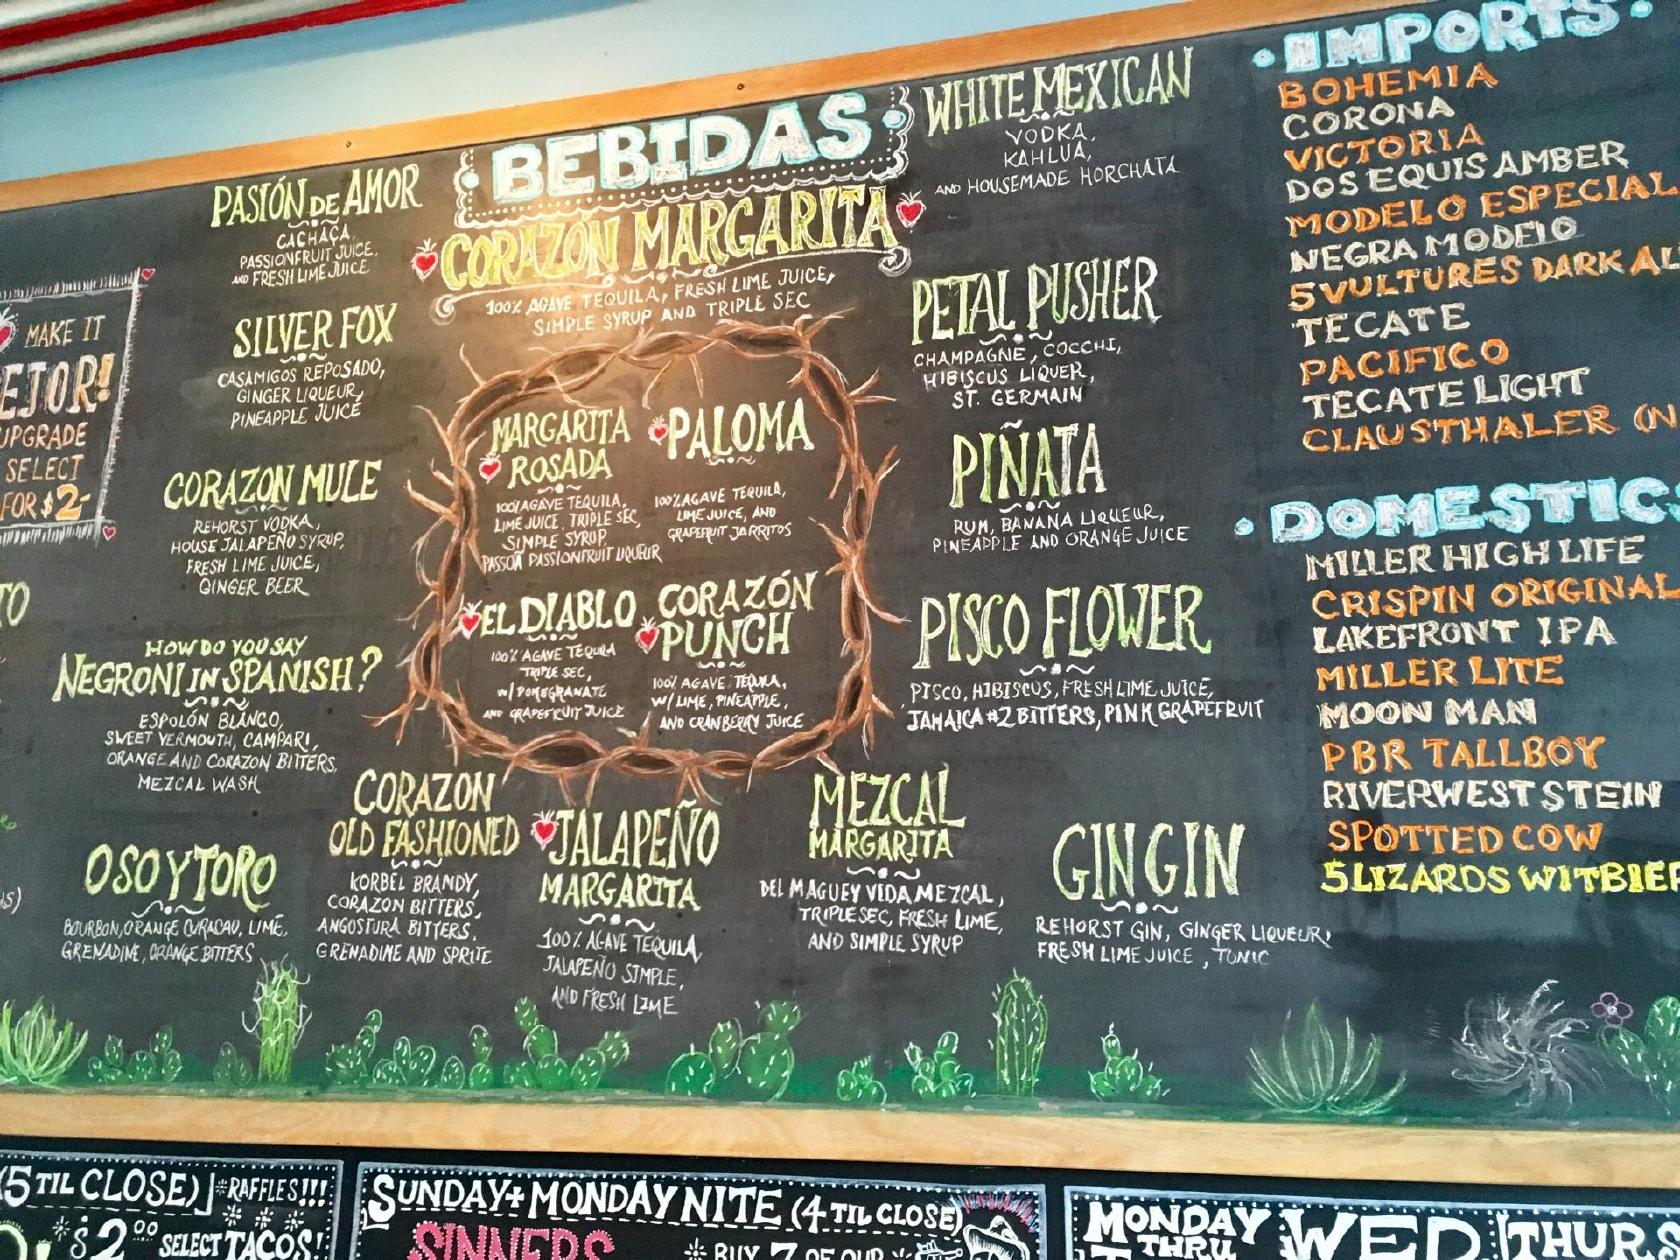 BEBIDAS
CORAZÓN MARGARITA
100% AGAVE TEQUILA, FRESH LIME JUICE,
SIMPLE SYRUP AND TRIPLE SEC
MAKE IT
EJOR!
UPGRADE
SELECT
FOR $2-
TO
PASIÓN DE AMOR
CACHAÇA,
PASSIONFRUIT JUICE,
AND FRESH LIME JUICE
SILVER FOX
CASAMIGOS REPOSADO,
GINGER LIQUEUR,
PINEAPPLE JUICE
CORAZON MULE
REHORST VODKA,
HOUSE JALAPEÑO SYRUP,
FRESH LIME JUICE,
GINGER BEER
HOW DO YOU SAY
NEGRONI IN SPANISH?
ESPOLÓN BLANCO,
SWEET VERMOUTH, CAMPARI,
ORANGE AND CORAZON BITTERS,
MEZCAL WASH
OSO Y TORO
BOURBON, ORANGE CURACAO, LIME,
GRENADINE, ORANGE BITTERS
CORAZON
OLD FASHIONED
KORBEL BRANDY,
CORAZON BITTERS,
ANGOSTURA BITTERS,
GRENADINE AND SPRITE
MARGARITA
ROSADA
100% AGAVE TEQUILA,
LIME JUICE, TRIPLE SEC,
SIMPLE SYRUP,
PASSOÃ PASSIONFRUIT LIQUEUR
PALOMA
100% AGAVE TEQUILA,
LIME JUICE, AND
GRAPEFRUIT JARRITOS
EL DIABLO
100% AGAVE TEQUILA
TRIPLE SEC,
W/ POMEGRANATE
AND GRAPEFRUIT JUICE
CORAZÓN
PUNCH
100% AGAVE TEQUILA,
W/ LIME, PINEAPPLE,
AND CRANBERRY JUICE
JALAPEÑO
MARGARITA
100% AGAVE TEQUILA,
JALAPEÑO SIMPLE,
AND FRESH LIME
MEZCAL
MARGARITA
DEL MAGUEY VIDA MEZCAL,
TRIPLE SEC, FRESH LIME,
AND SIMPLE SYRUP
WHITE MEXICAN
VODKA,
KAHLUA,
AND HOUSEMADE HORCHATA
PETAL PUSHER
CHAMPAGNE, COCCHI,
HIBISCUS LIQUER,
ST. GERMAIN
PIÑATA
RUM, BANANA LIQUEUR,
PINEAPPLE AND ORANGE JUICE
PISCO FLOWER
PISCO, HIBISCUS, FRESH LIME JUICE,
JAMAICA #2 BITTERS, PINK GRAPEFRUIT
GIN GIN
REHORST GIN, GINGER LIQUEUR,
FRESH LIME JUICE, TONIC
IMPORTS
BOHEMIA
CORONA
VICTORIA
DOS EQUIS AMBER
MODELO ESPECIAL
NEGRA MODELO
5 VULTURES DARK AL
TECATE
PACIFICO
TECATE LIGHT
CLAUSTHALER (N
DOMESTICS
MILLER HIGH LIFE
CRISPIN ORIGINAL
LAKEFRONT IPA
MILLER LITE
MOON MAN
PBR TALLBOY
RIVERWEST STEIN
SPOTTED COW
5 LIZARDS WITBIER
(5 TIL CLOSE)
*RAFFLES!!!
$2.00
SELECT TACOS!
SUNDAY + MONDAY NITE (4 TIL CLOSE)
SINNERS
BUY 7 OF OUR
MONDAY
THRU
WED
THURS